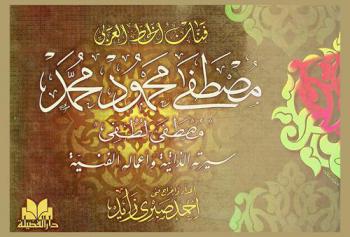 فنان الخط العربي
مصطفى محمود محمد
"مصطفى لطفي"
سيرته الذاتية وأعماله الفنية
إعداد وإخراج فني
أحمد صبري زايد
دار الفضيلة